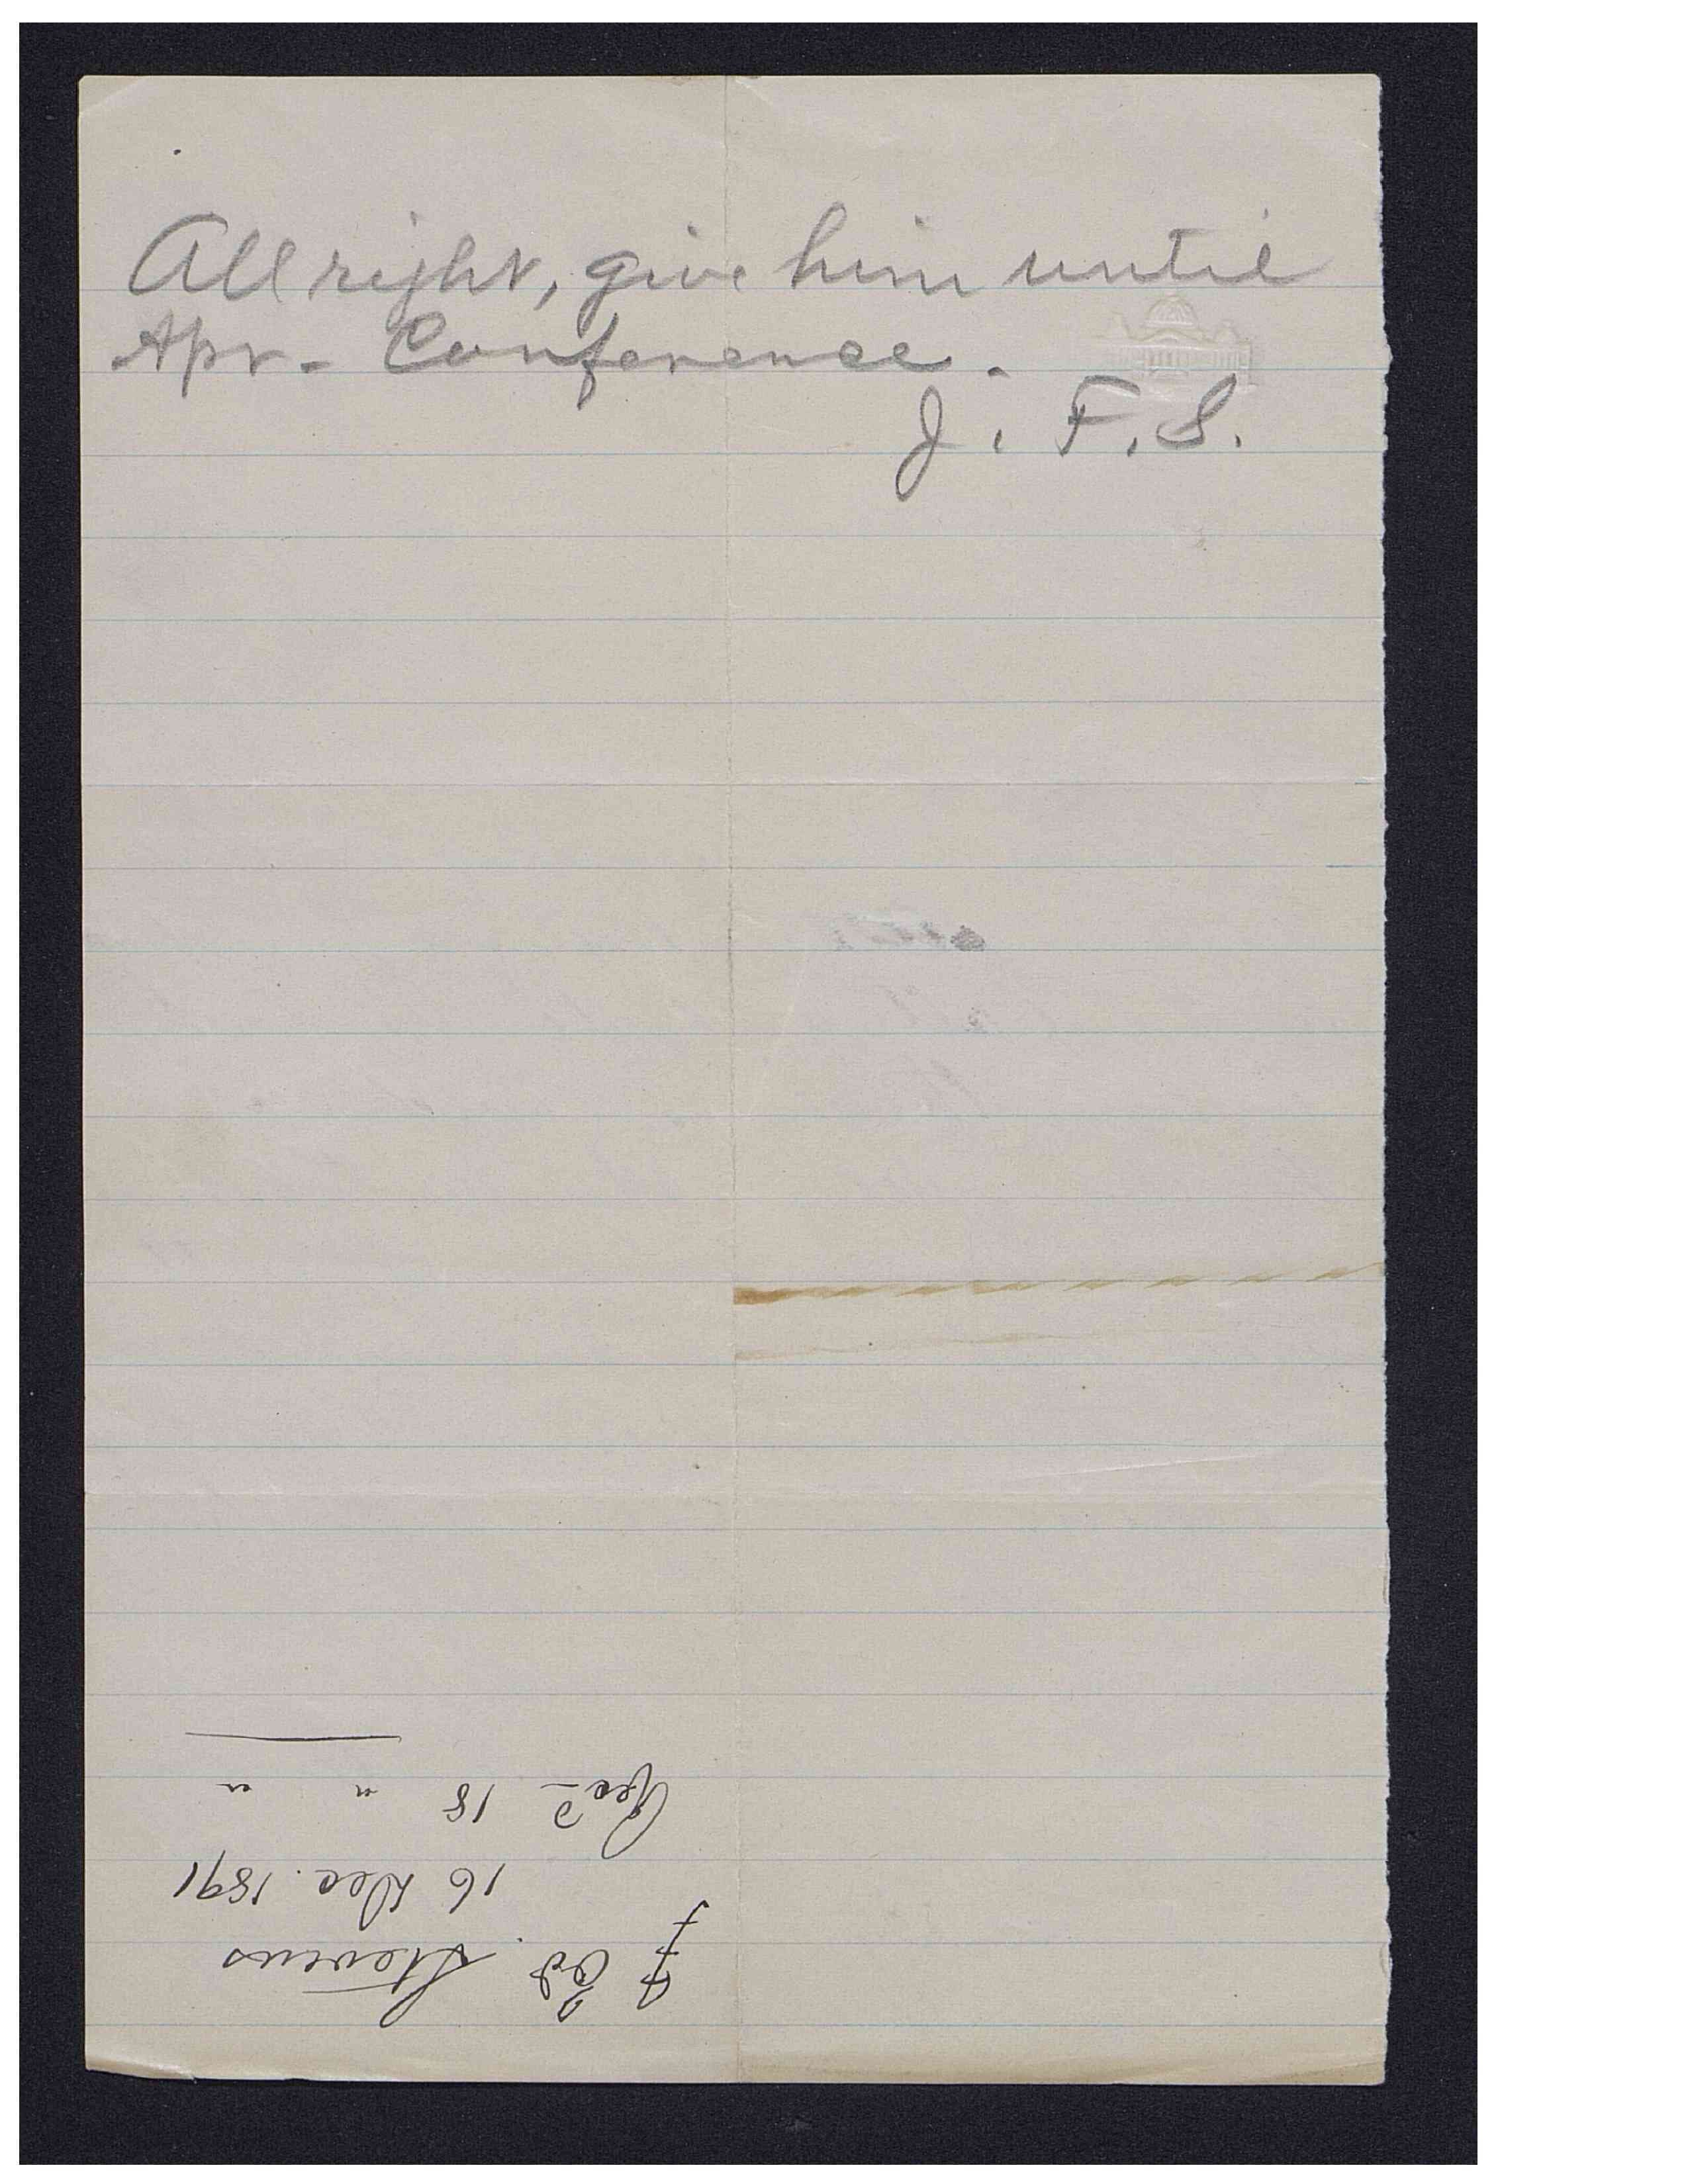 All right, give him until
Apr. Conference.
J. F. S.
Ed. Stevens
16 Dec. 1891
Recd 18 " "